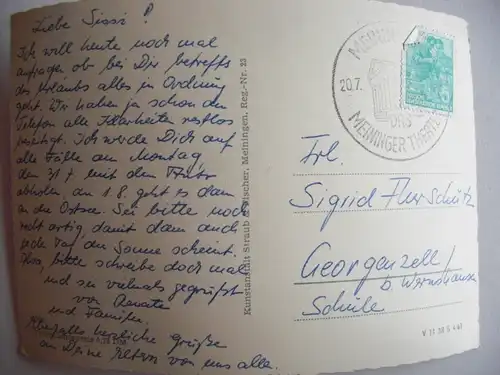 Liebe Sissi!
Ich will heute noch mal
anfragen ob bei Dir betreffs
des Urlaubs alles in Ordnung
geht. Wir haben ja schon am
Telefon alle Klarheiten restlos
beseitigt. Ich werde Dich auf
alle Fälle am Montag,
den 31.7 mit dem Auto
abholen, am 1.8. geht es dann
an die Ostsee. Sei bitte noch
recht artig, damit dann auch
jeden Tag die Sonne scheint.
Also, bitte schreibe doch mal
und sei vielmals gegrüßt
von Renate
und Familie.
Ebenfalls herzliche Grüße
an Deine Eltern von uns allen.
Kunstanstalt Straub & Fischer, Meiningen, Reg.-Nr. 25
20.7.
DAS
MEININGER THEATER
Frl.
Sigrid
Georgenzell/
b. Wernshausen
Schule
V 11 28 G 4 61